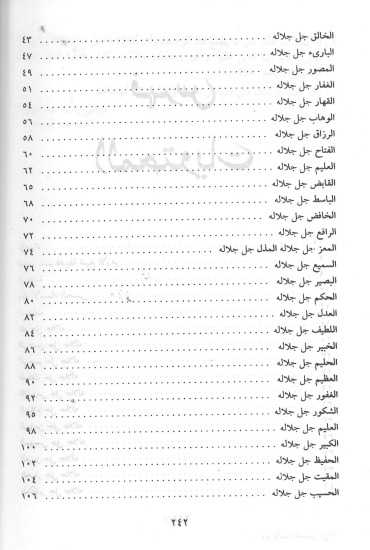 الخالق جل جلاله ........ ٤٣
البارىء جل جلاله ........ ٤٧
المصور جل جلاله ........ ٤٩
الغفار جل جلاله ........ ٥١
القهار جل جلاله ........ ٥٤
الوهاب جل جلاله ........ ٥٦
الرزاق جل جلاله ........ ٥٨
الفتاح جل جلاله ........ ٦٠
العليم جل جلاله ........ ٦٢
القابض جل جلاله ........ ٦٥
الباسط جل جلاله ........ ٦٨
الخافض جل جلاله ........ ٧٠
الرافع جل جلاله ........ ٧٢
المعز جل جلاله المذل جل جلاله ........ ٧٤
السميع جل جلاله ........ ٧٦
البصير جل جلاله ........ ٧٨
الحكم جل جلاله ........ ٨٠
العدل جل جلاله ........ ٨٢
اللطيف جل جلاله ........ ٨٤
الخبير جل جلاله ........ ٨٦
الحليم جل جلاله ........ ٨٨
العظيم جل جلاله ........ ٩٠
الغفور جل جلاله ........ ٩٢
الشكور جل جلاله ........ ٩٥
العليم جل جلاله ........ ٩٨
الكبير جل جلاله ........ ١٠٠
الحفيظ جل جلاله ........ ١٠٢
المقيت جل جلاله ........ ١٠٤
الحسيب جل جلاله ........ ١٠٦
٢٤٢